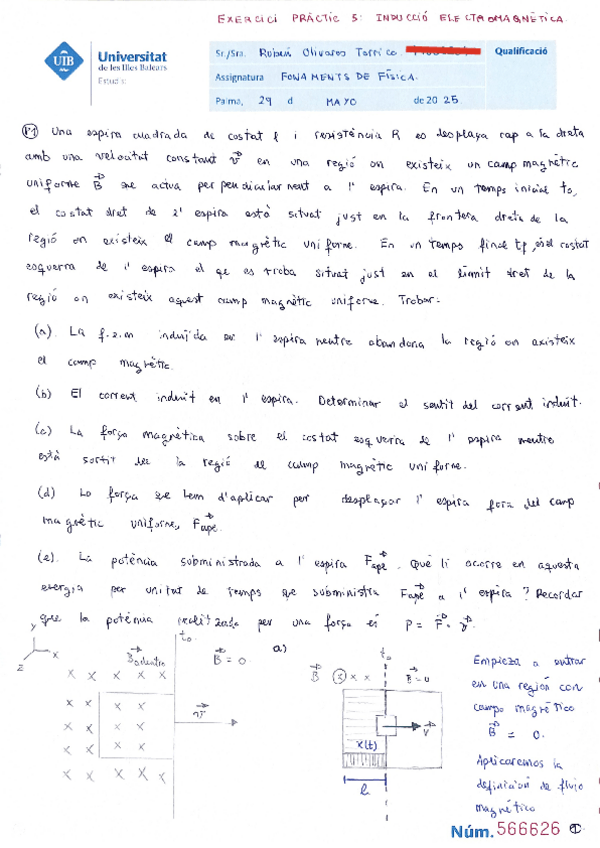 EXERCICI PRÀCTIC 5: INDUCCIÓ ELECTROMAGNÈTICA
UIB Universitat
de les Illes Balears
Estudis:
Sr./Sra. Rubén Olivares Torrico
Qualificació
Assignatura FONAMENTS DE FÍSICA.
Palma, 29 d MAYO de 20 25.
P1 Una espira cuadrada de costat l i resistència R es desplaça cap a la dreta
amb una velocitat constant v en una regió on existeix un camp magnètic
uniforme B que actua perpendicularment a l'espira. En un temps inicial to,
el costat dret de l'espira està situat just en la frontera dreta de la
regió on existeix el camp magnètic uniforme. En un temps final tf, costat
esquerra de l'espira el qe es troba situat just en el límit dret de la
regió on existeix aquest camp magnètic uniforme. Trobar:
(a). La f.e.m induïda en l'espira mentre abandona la regió on existeix
el camp magnètic.
(b) El corrent induït en l'espira. Determinar el sentit del corrent induït.
(c) La força magnètica sobre el costat esquerra de l'espira mentre
està sortit de la regió de camp magnètic uniforme.
(d) La força que hem d'aplicar per desplaçar l'espira fora del camp
magnètic uniforme, Fapl.
(e). La potència subministrada a l'espira Fapl. Què li ocorre en aquesta
energia per unitat de temps que subministra Fapl a l'espira? Recordar
que la potència realitzada per una força és P = F · v.
y
z x
B dentro
to
B = 0
v
x x x x x
x x x x
x x x x
x x x x
x x x x
a)
B x x x
to
B = 0
v
x(t)
l
Empieza a entrar
en una región con
campo magnético
B = 0.
Aplicaremos la
definición de flujo
magnético
Núm. 566626 1